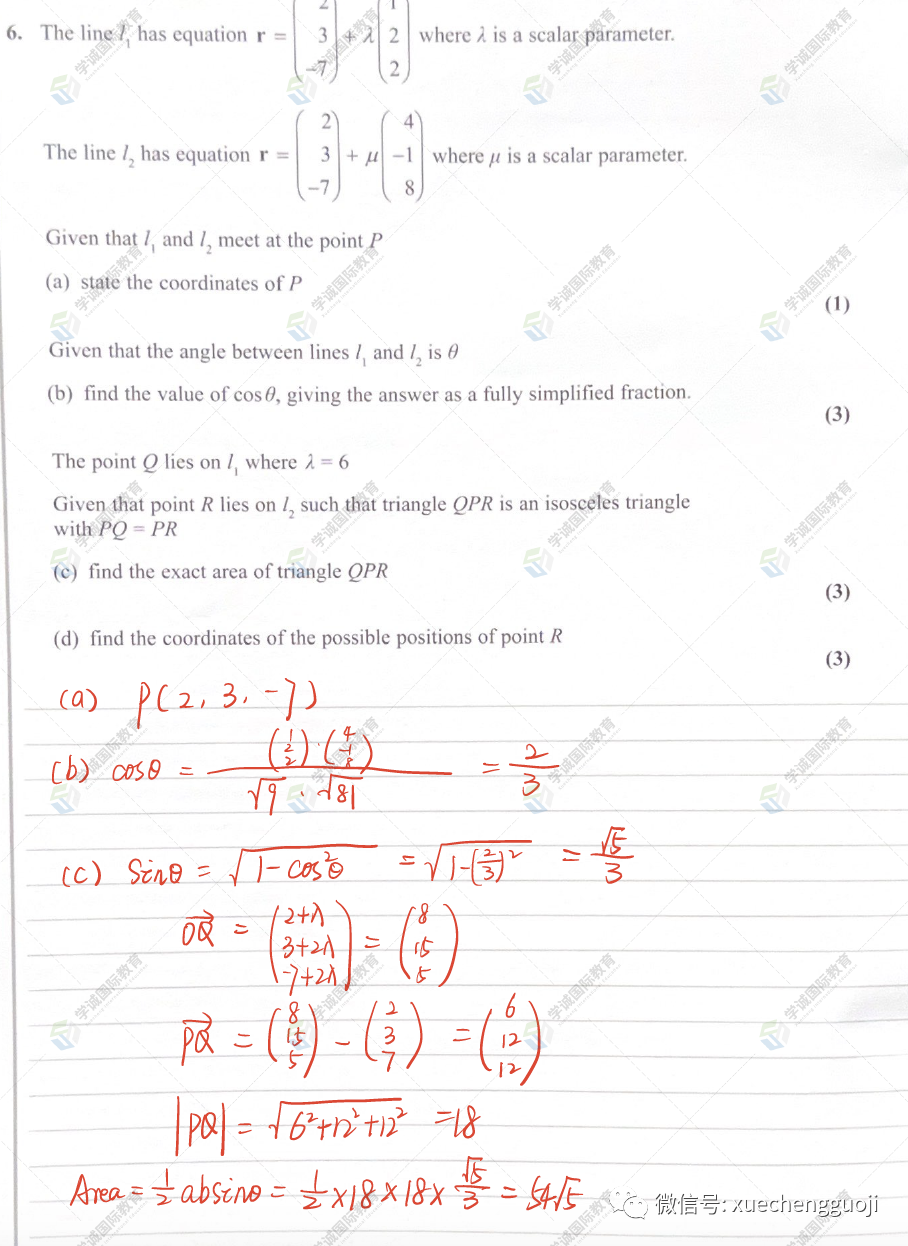 6. The line l₁ has equation r = (2 3 -7) + λ(1 2 2) where λ is a scalar parameter.
The line l₂ has equation r = (2 3 -7) + μ(4 -1 8) where μ is a scalar parameter.
Given that l₁ and l₂ meet at the point P
(a) state the coordinates of P
(1)
Given that the angle between lines l₁ and l₂ is θ
(b) find the value of cosθ, giving the answer as a fully simplified fraction.
(3)
The point Q lies on l₁ where λ = 6
Given that point R lies on l₂ such that triangle QPR is an isosceles triangle
with PQ = PR
(c) find the exact area of triangle QPR
(3)
(d) find the coordinates of the possible positions of point R
(3)
(a) P(2, 3, -7)
(b) cosθ = (1 2 2)·(4 -1 8) / √9 · √81 = 2/3
(c) Sinθ = √(1-cos²θ) = √(1-(2/3)²) = √5/3
OQ = (2+λ 3+2λ -7+2λ) = (8 15 5)
PQ = (8 15 5) - (2 3 7) = (6 12 12)
|PQ| = √(6²+12²+12²) = 18
Area = 1/2 absinθ = 1/2 × 18 × 18 × √5/3 = 54√5
微信号: xuechengguoji
学诚国际教育